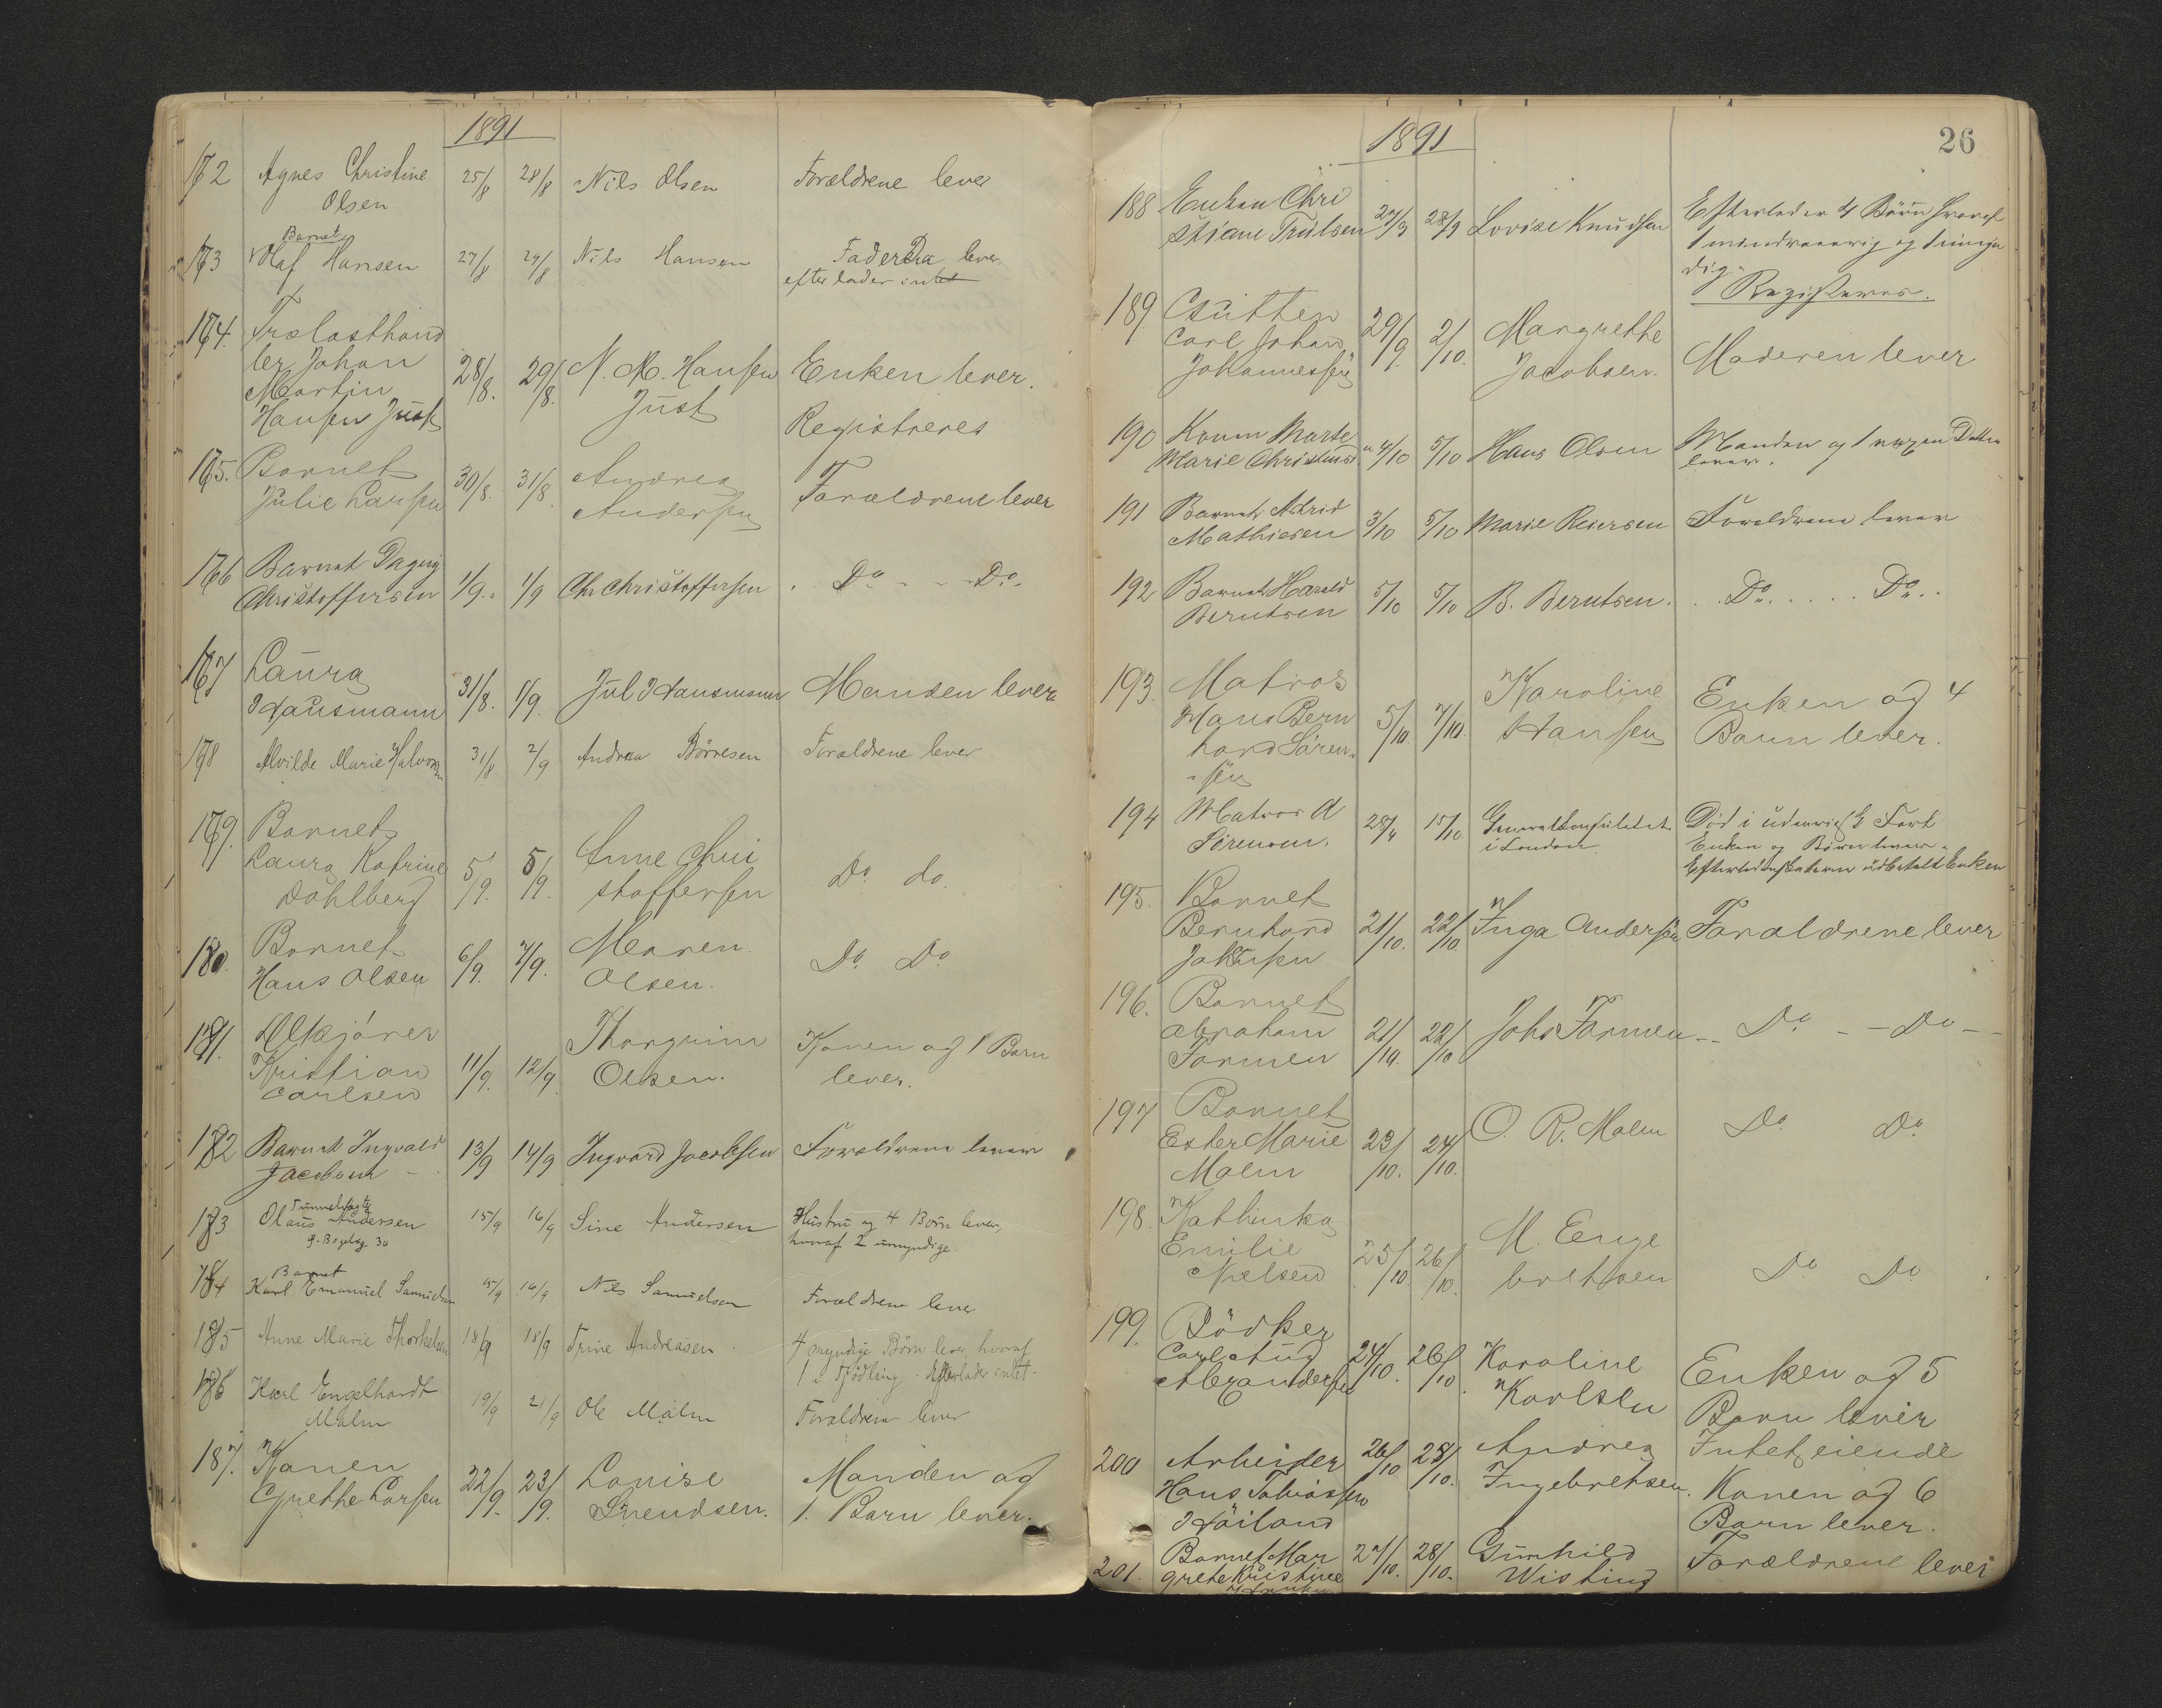 1891
172 Agnes Christine 25/8 28/8 Nils Olsen Forældrene lever
Olsen
Barnet
173 Olaf Hansen 27/8 29/8 Nils Hansen Faderen lever
efterlader intet
174. Trælasthand
ler Johan
Martin 28/8. 29/8. N. M. Hansen Enken lever.
Hansen Just Just Registreres
175. Barnet
Julie Larsen 30/8. 31/8. Andrea Forældrene lever
Andersen
176 Barnet Dagny
Christoffersen 1/9. 1/9 Chr Christoffersen Do - - - Do.
177 Laura
Hausmann 31/8. 1/9. Jul Hausmann Manden lever
178 Alvilde Marie Halvorsen 31/8 2/9 Andrea Börresen Forældrene lever
179. Barnet
Laura Katrine 5/9. 5/9. Anne Chri Do. do.
Dahlberg stoffersen
180. Barnet 6/9. 7/9. Maren Do. Do.
Hans Olsen Olsen.
181.
Kristian 11/9. 12/9. Olsen. Konen og 1 Barn
Carlsen lever.
182 Barnet Ingvald 13/9 14/9 Ingvard Jacobsen Forældrene lever
Jacobsen
183 Olaus Andersen 15/9 16/9 Sine Andersen Hustru og 4 Börn lever,
30 hvoraf 2 umyndige.
Barnet
184 Karl Emanuel Samuelsen 15/9 16/9 Nils Samuelsen Forældrene lever
185 Anne Marie Thorkelsen 18/9 18/9 Trine Andreasen 4 myndige Börn lever, hvoraf
1 i Kjödling. Efterlader intet.
186 Karl Engelhardt 19/9 21/9 Ole Malm Forældrene lever
Malm
187. Konen 22/9. 23/9. Louise Manden og
Grethe Larsen Svendsen. 1. Barn lever.
26
1891
188 Enken Chri
stiane Trulsen 27/9 28/9 Lovise Knudsen Efterlader 4 Börn hvoraf
1 mindreaarig og 1 umyn
dig.
Registreres.
189.
Carl Johan 29/9. 2/10. Margrethe Moderen lever
Johannessen Jacobsen.
190 Konen Marte
Marie Christens 4/10 5/10 Hans Olsen Manden og 1 voxen Datter
lever.
191 Barnet Astrid
Mathiesen 3/10 5/10 Marie Reiersen Forældrene lever
192 Barnet Harald
Berntsen 5/10 5/10 B. Berntsen. Do. Do.
193. Matros
Hans Bern 5/10 7/10. Karoline Enken og 4
hard Sören- Hansen Barn lever.
sen
194 Matros A 28/4 15/10 Generalkonsulatet Död i udenrigsk Fart
Sörensen. i London. Enken og Börn lever.
udbetalt Enken
195. Barnet
Bernhard 21/10. 22/10 Inga Andersen Forældrene lever
196. Barnet
Abraham 21/10. 22/10 Johs Farmen Do - - Do - -
Farmen
197 Barnet
Ester Marie 23/10. 24/10. O. R. Malm Do. Do.
Malm
198. Kathinka
Emilie 25/10 26/10. M. Enge Do Do
Nielsen bretsen
199. Bödker
Carl Aug 24/10. 26/10. Karoline Enken og 5
Alexandersen Karlsen Barn lever
200 Arbeider 26/10 28/10. Andrea Intet eiende
Hans Tobiassen Ingebretsen. Konen og 6
Höiland Barn lever.
201. Barnet Mar 27/10. 28/10. Gunhild Forældrene lever
grete Kristine Wisting